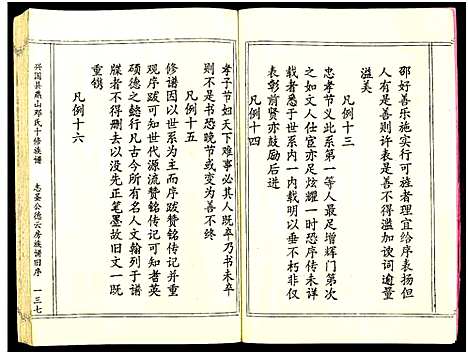 邵好善乐施实行可旌者理宜给序表扬但
人有是善则许表是善不得滥加谀词逾量
溢美
凡例十三
忠孝节义此系第一等人最足增辉门第次
则如文人仕宦亦足炫耀一时恐序传未详
载者悉于世系内一一书明不独阐扬
表彰前贤亦鼓励后进
凡例十四
孝子节妇天下难事必其人既卒乃书未卒
则不是书恐晚节或变为善不终
凡例十五
修谱因以世系为主而序跋赞铭传记可兼
观序跋可知世代源流赞铭传记可知者英
硕德之懿行凡古今所有名人文翰刊列谱
牒者不得删去以没先正笔墨故旧文一既
重镌
凡例十六
兴国县燕山邓氏十修族谱
志圣公德云房族谱旧序
一三七